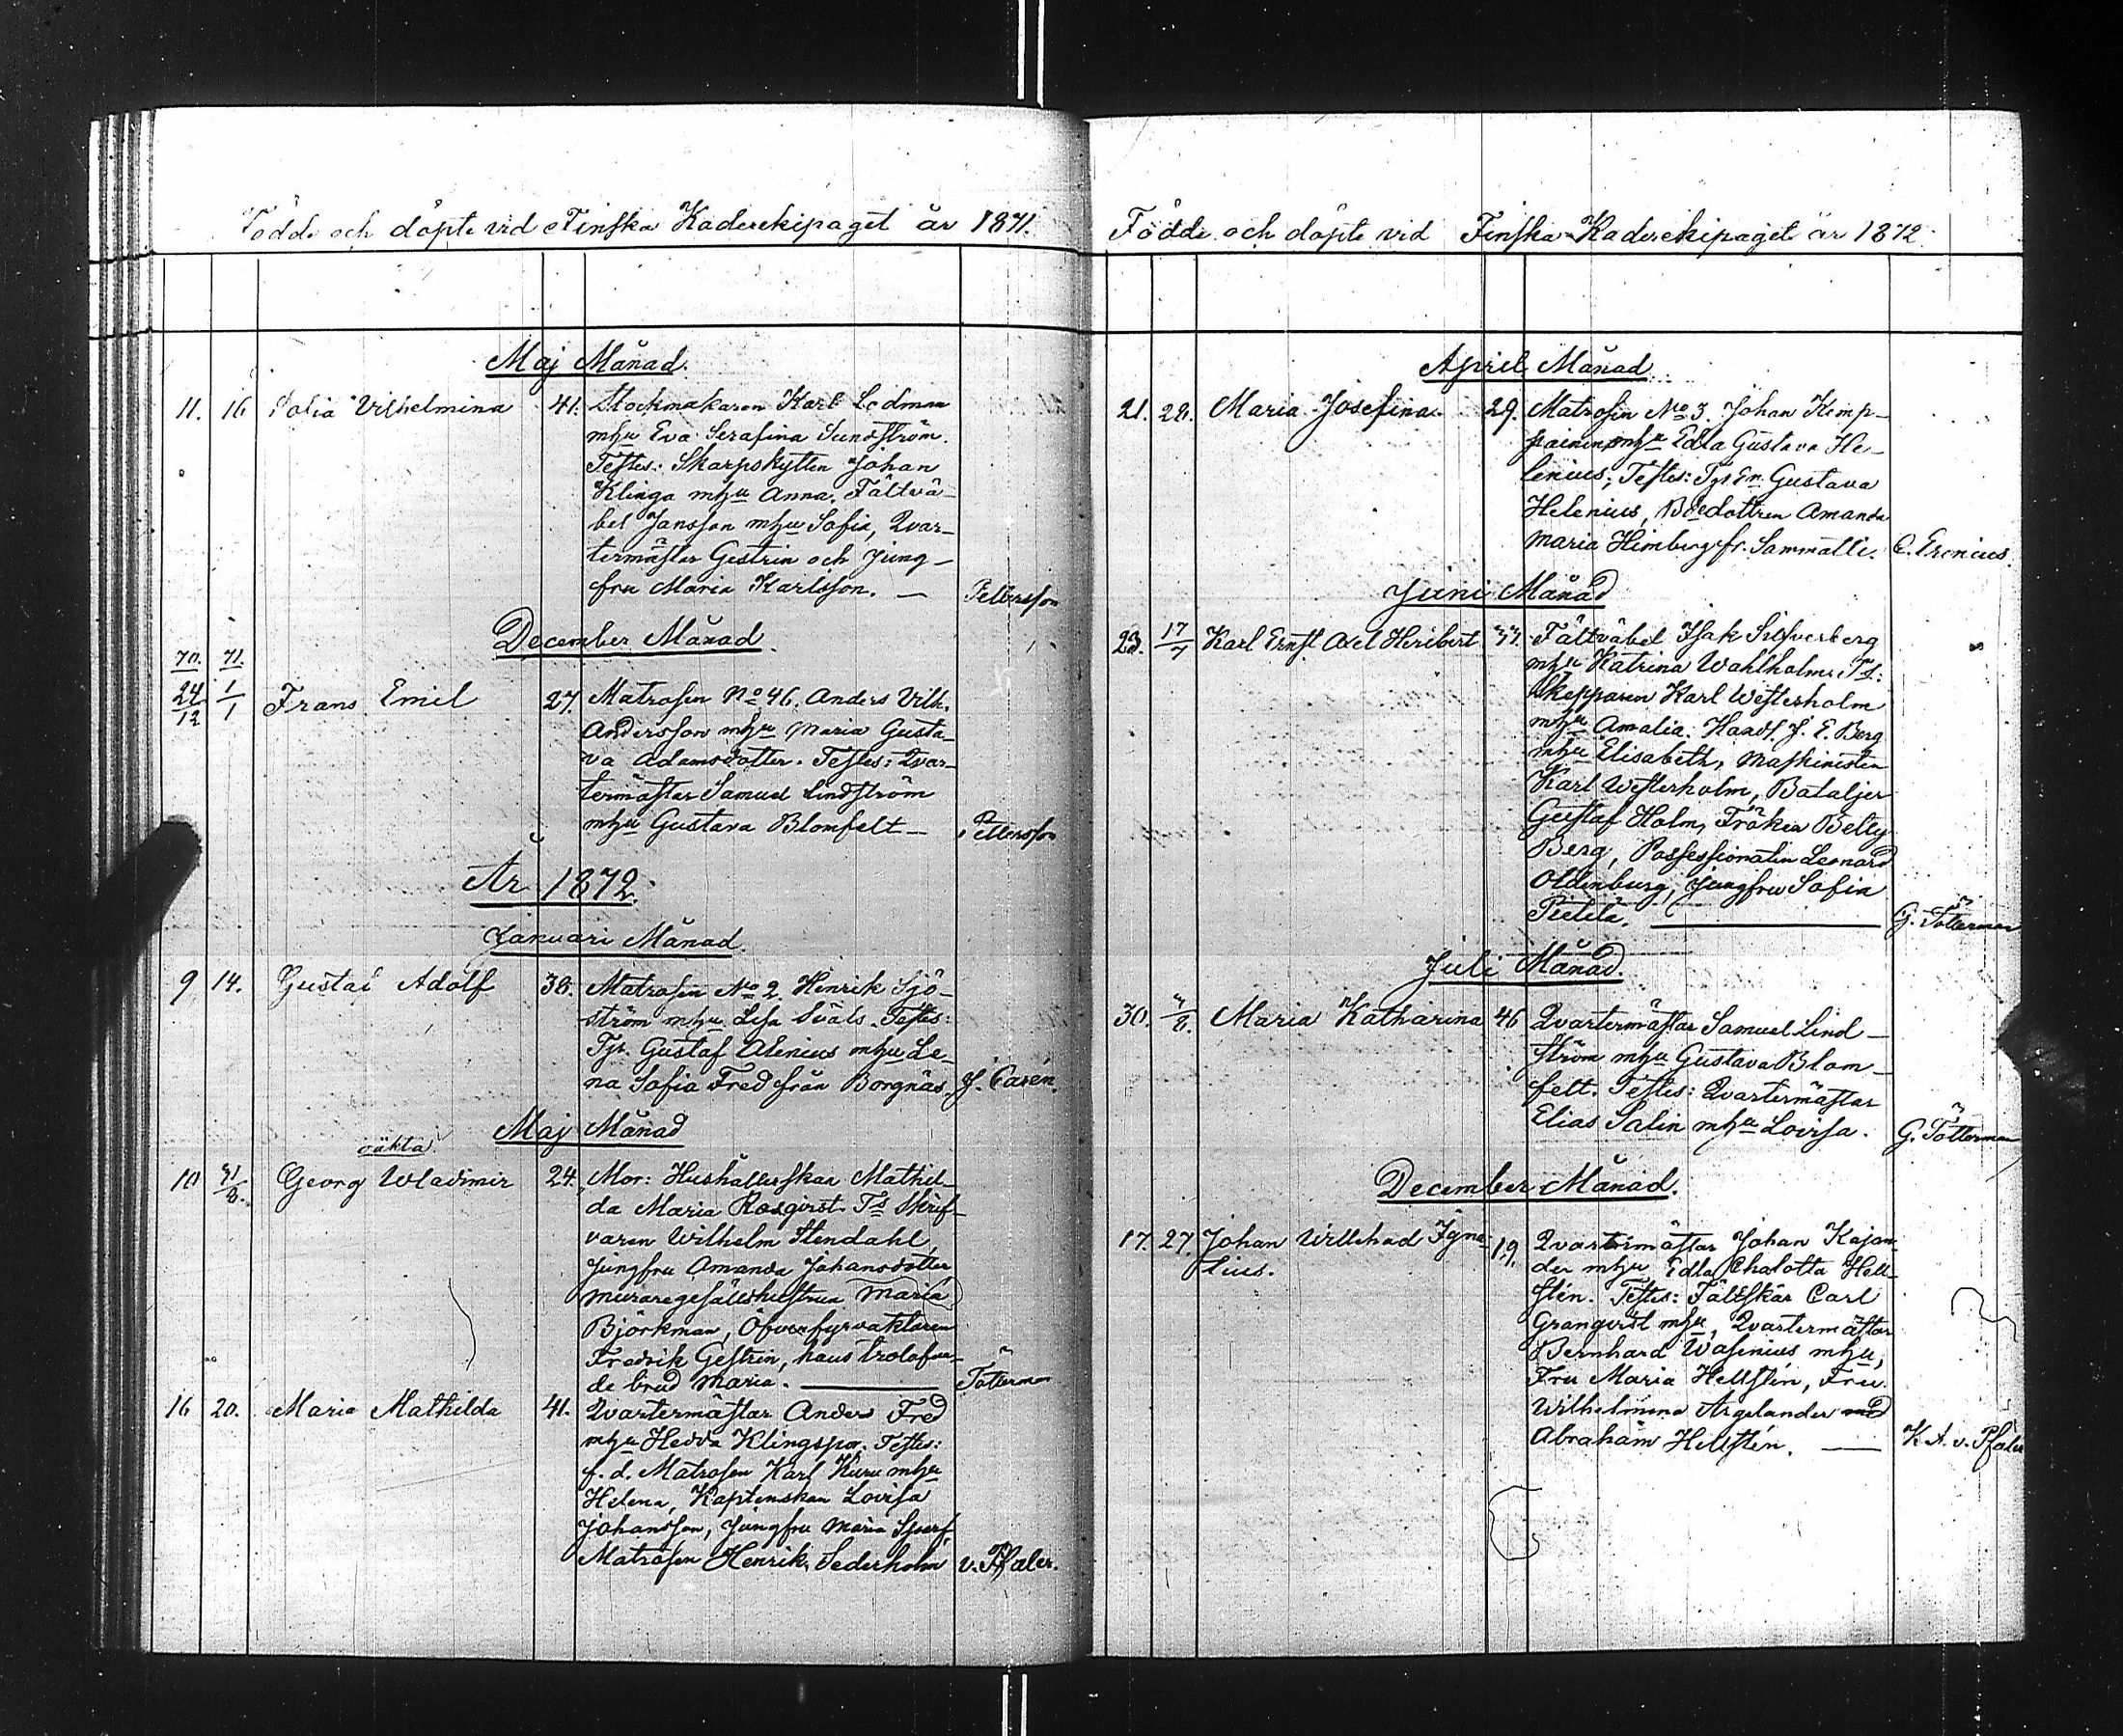 Födde och döpte vid Finska Kaderekipaget år 1871.
Maj Månad.
11. 16 Sofia Vilhelmina 41. Stockmakaren Karl Ledman
mhu Eva Serafina Sundström.
Testes: Skarpskytten Johan
Klinga mhu Anna. Fältvä-
bel Jansson mhu Sofia, Qvar-
termästar Gestrin och Jung-
fru Maria Karlsson. — Pettersson
December Månad.
70. 71.
24/12 1/1 Frans Emil 27. Matrosen No 46. Anders Vilh.
Andersson mhu Maria Gusta-
va Adamsdotter. Testes: Qvar-
termästar Samuel Lindström
mhu Gustava Blomfelt — Pettersson
År 1872.
Januari Månad.
9 14. Gustaf Adolf 38. Matrosen No 2. Henrik Sjö-
ström mhu Lisa Sväls. Testes:
Tjr. Gustaf Alenius mhu Le-
na Sofia Fred från Borgnäs. J. Carén.
Maj Månad
oäkta
10 Georg Wladimir 24. Mor: Hushållerskan Mathil-
da Maria Rosqvist. Ts Skrif-
varen Wilhelm Stendahl,
Jungfru Amanda Johansdotter
muraregesällshustrun Maria
Björkman, Öfverfyrvaktaren
Fredrik Gestrin, hans trolofva-
de brud Maria. — Tötterman
16 20. Maria Mathilda 41. Qvartermästar Anders Fred
mhu Hedda Klingspor. Testes:
f. d. Matrosen Karl Kuru mhu
Helena, Kaptenskan Lovisa
Johansson, Jungfru Maria
Matrosen Henrik Sederholm v. Pfaler.
Födde och döpte vid Finska Kaderekipaget år 1872
April Månad
21. 28. Maria Josefina 29. Matrosen No 3 Johan Kemp-
painen mhu Edla Gustava He-
lenius; Testes: Gustava
Helenius, Bdedottren Amanda
Maria Himberg fr. Sammatti. C. Erenius.
Juni Månad
23. 17/7 Karl Ernst Axel Heribert 37. Fältväbel Isak Silfverberg
mhu Katrina Wahlholm. Ts:
Skepparen Karl Westerholm
mhu Amalia. Handl. J. E. Berg
mhu Elisabeth, Maskinisten
Karl Westerholm, Bataljer
Gustaf Holm, Fröken Betty
Berg, Possessionaten Leonard
Oldenburg, Jungfru Sofia
Pietilä. — G. Tötterman
Juli Månad.
30. 4/8. Maria Katharina 46 Qvartermästar Samuel Lind-
ström mhu Gustava Blom-
felt. Testes: Qvartermästar
Elias Salin mhu Lovisa. G. Tötterman
December Månad.
17. 27. Johan Willehad Igna-
tius. 19. Qvartermästar Johan Kajan-
der mhu Edla Chalotta Hell-
stén. Testes: Fältskär Carl
Granqvist mhu, Qvartermästar
Bernhard Wasenius mhu,
Fru Maria Hellstén, Fru
Wilhelmina Argelander med
Abraham Hellstén. — K. A. v. Pfaler